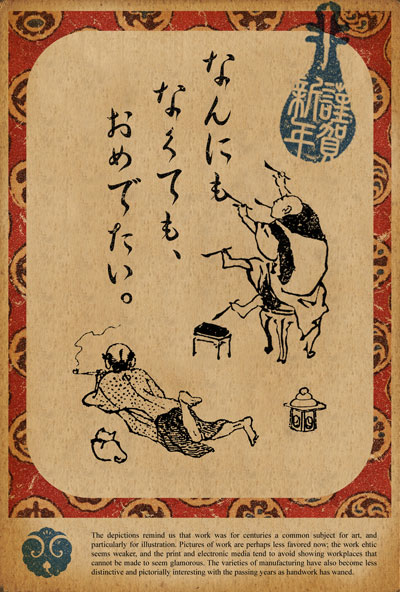 謹賀
新年
なんにも
なくても、
おめでたい。
The depictions remind us that work was for centuries a common subject for art, and
particularly for illustration. Pictures of work are perhaps less favored now; the work ehtic
seems weaker, and the print and electronic media tend to avoid showing workplaces that
cannot be made to seem glamorous. The varieties of manufacturing have also become less
distinctive and pictorially interesting with the passing years as handwork has waned.